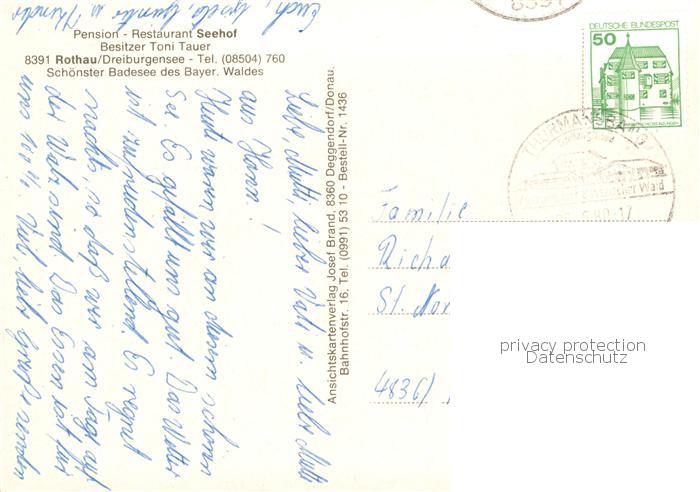 Pension - Restaurant Seehof
Besitzer Toni Tauer
8391 Rothau/Dreiburgensee - Tel. (08504) 760
Schönster Badesee des Bayer. Waldes
Liebe Mutti, lieber Vati u. liebe
aus
Heut waren wir an diesem schönen
See. Es gefällt uns gut. Das Wetter
ist zufriedenstellend. Es regnet
nachts, so daß wir am Tage auf
der Walz sind. Das Essen ist für
uns 100%. Viele liebe Grüße senden
Euch, Gisela, Günter u. Kinder
Ansichtskartenverlag Josef Brand, 8360 Deggendorf/Donau.
Bahnhofstr. 16, Tel. (0991) 53 10 - Bestell-Nr. 1436
DEUTSCHE BUNDESPOST
50
8391
THURMANSBANG
Familie
Richa
St. Nor
4836/
privacy protection
Datenschutz